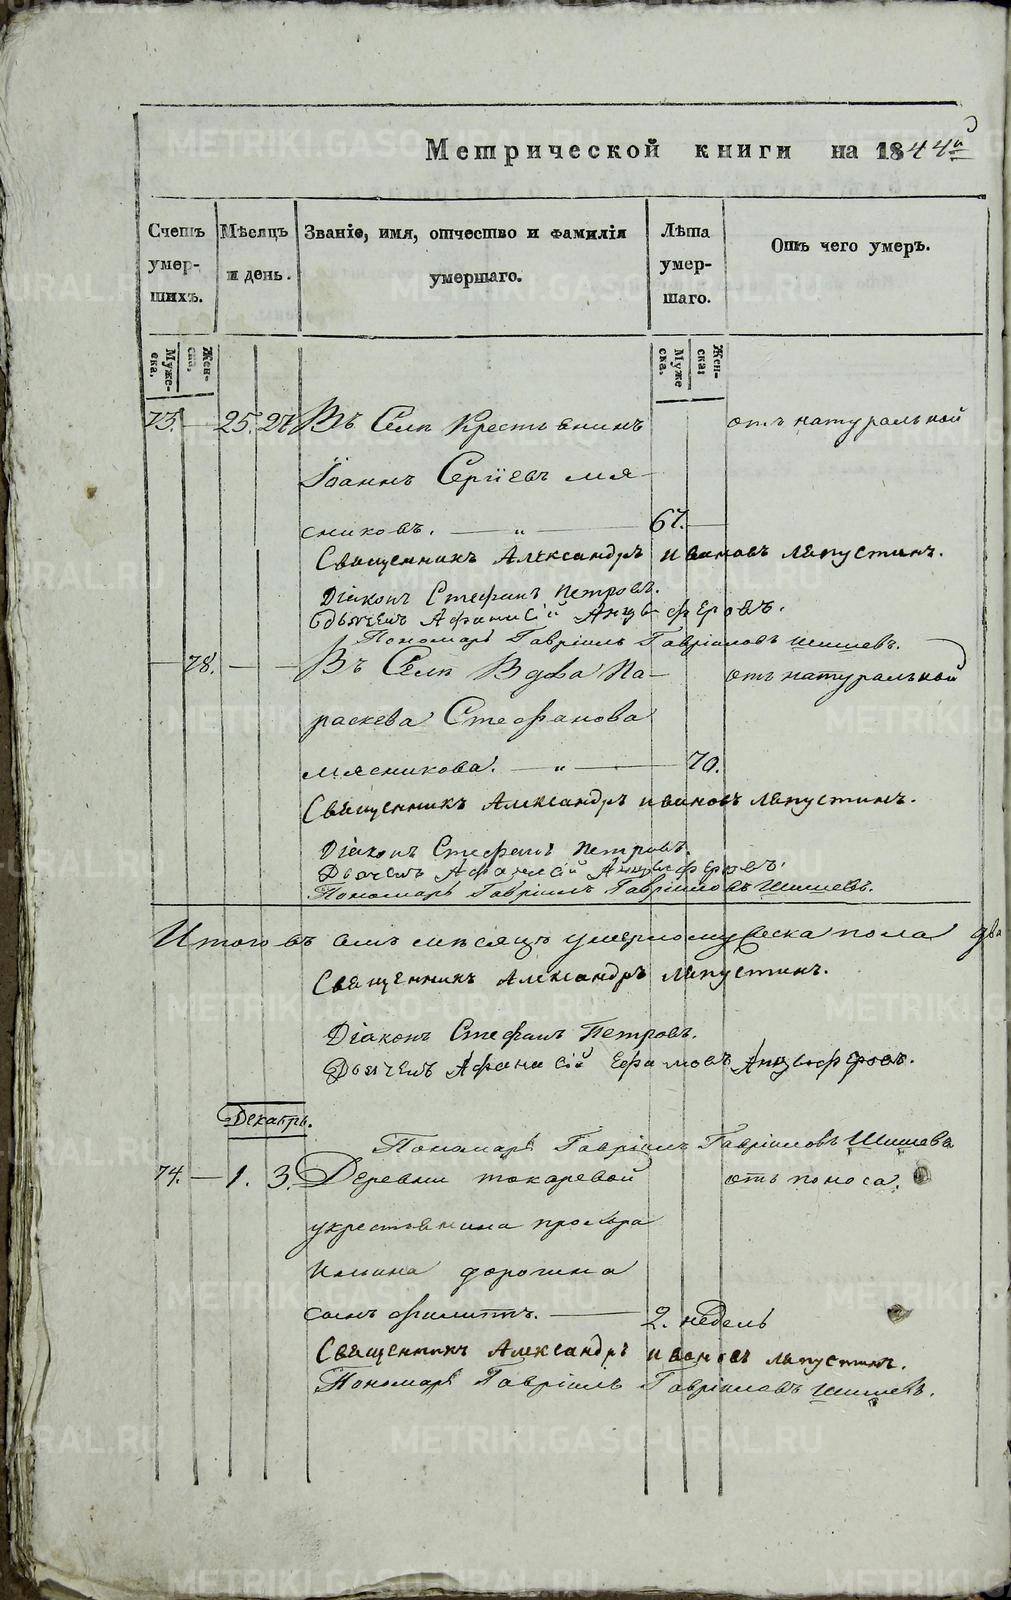 Метрической книги на 1844й
Счетъ умер- шихъ.
Мѣсяцъ и день.
Званіе, имя, отчество и фамилія умершаго.
Лѣта умер- шаго.
Отъ чего умеръ.
Муже- ска.
Жен- ска,
Муже ска.
Жен- ска:
73. — 25. 27 Въ Селѣ Крестьянинъ отъ натуральной
Іоаннъ Сергіевъ Мя-
сниковъ. — „ — 67. —
Священникъ Александръ Ивановъ Ляпустинъ.
Діаконъ Стефанъ Петровъ.
Дьячекъ Афанасій Анцыферовъ.
Пономарь Гавріилъ Гавріиловъ Шишевъ.
— 78. — — Въ Селѣ Вдова Па- отъ натуральной
раскева Стефанова
Мясникова. — „ — 70.
Священникъ Александръ Ивановъ Ляпустинъ.
Діаконъ Стефанъ Петровъ.
Дьячекъ Афанасій Анцыферовъ.
Пономарь Гавріилъ Гавріиловъ Шишевъ.
Итого въ семъ мѣсяцѣ умерло муческа пола два
Священникъ Александръ Ляпустинъ.
Діаконъ Стефанъ Петровъ.
Дьячекъ Афанасій Ефимовъ Анцыферовъ.
Декабрь.
Пономарь Гавріилъ Гавріиловъ Шишевъ
74. — 1. 3. Деревни токаревой отъ поноса.
у крестьянина прокла
Ильина дорогина
сынъ филиппъ. — 2. недель
Священникъ Александръ Ивановъ Ляпустинъ.
Пономарь Гавріилъ Гавріиловъ Шишевъ.
METRIKI.GASO-URAL.RU